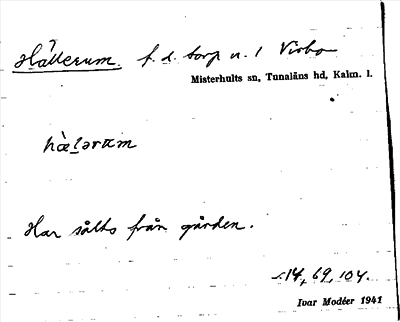 Hällerum. f. d. torp u. 1 Virbo
Misterhults sn, Tunaläns hd, Kalm. l.
hæ̀lərᴜm
Har sålts från gården.
s. 14, 69, 104.
Ivar Modéer 1941